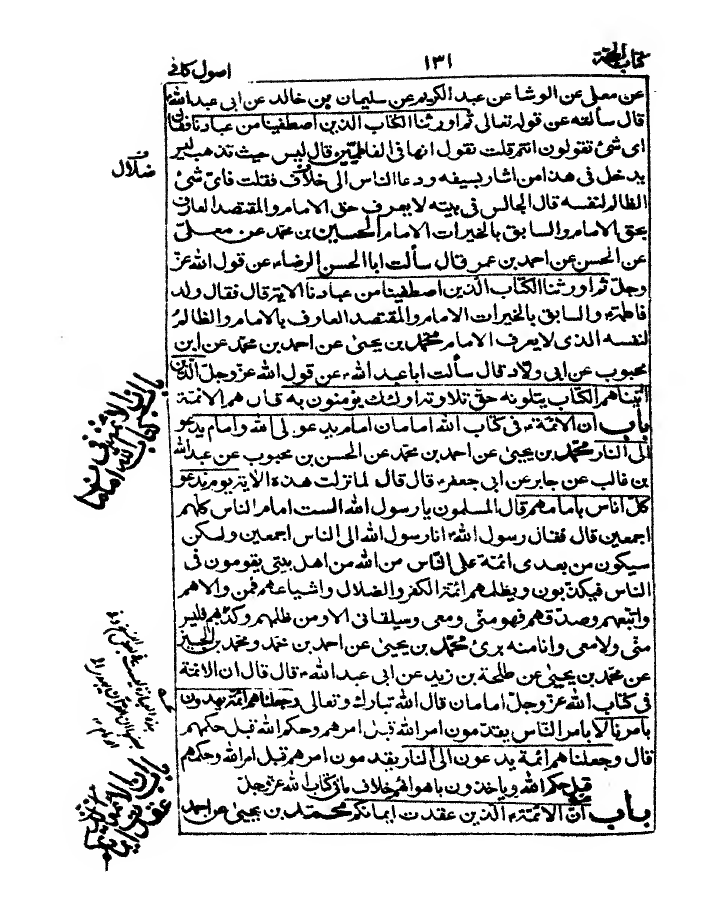 كتاب الحجة
١٣١
اصول كافى
عن معلى عن الوشا عن عبد الكريم عن سليمان بن خالد عن ابى عبد الله ع
قال سألته عن قوله تعالى ثم اورثنا الكتاب الذين اصطفينا من عبادنا فقال
اى شئ تقولون انتم قلت نقول انها فى الفاطميين قال ليس حيث تذهب ليس
يدخل فى هذا من اشار بسيفه ودعا الناس الى خلاف فقلت فاى شئ
الظالم لنفسه قال الجالس فى بيته لا يعرف حق الامام والمقتصد العارف
بحق الامام والسابق بالخيرات الامام الحسين بن محمد عن معلى
عن الحسن عن احمد بن عمر قال سألت ابا الحسن الرضا ع عن قول الله عز
وجل ثم اورثنا الكتاب الذين اصطفينا من عبادنا الاية قال فقال ولد
فاطمة ع والسابق بالخيرات الامام والمقتصد العارف بالامام والظالم
لنفسه الذى لا يعرف الامام محمد بن يحيى عن احمد بن محمد عن ابن
محبوب عن ابى ولاد قال سألت ابا عبد الله ع عن قول الله عز وجل الذين
اتيناهم الكتاب يتلونه حق تلاوته اولئك يؤمنون به قال هم الائمة
باب ان الائمة ع فى كتاب الله امامان امام يدعو الى الله وامام يدعو
الى النار محمد بن يحيى عن احمد بن محمد عن الحسن بن محبوب عن عبد الله
بن غالب عن جابر عن ابى جعفر ع قال قال لما نزلت هذه الاية يوم ندعو
كل اناس بامامهم قال المسلمون يا رسول الله الست امام الناس كلهم
اجمعين قال فقال رسول الله ص انا رسول الله الى الناس اجمعين ولكن
سيكون من بعدى ائمة على الناس من الله من اهل بيتى يقومون فى
الناس فيكذبون ويظلمهم ائمة الكفر والضلال واشياعهم فمن والاهم
واتبعهم وصدقهم فهو منى ومعى وسيلقانى الا ومن ظلمهم وكذبهم فليس
منى ولا معى وانا منه برئ محمد بن يحيى عن احمد بن محمد ومحمد بن الحسين
عن محمد بن يحيى عن طلحة بن زيد عن ابى عبد الله ع قال قال ان الائمة
فى كتاب الله عز وجل امامان قال الله تبارك وتعالى وجعلناهم ائمة يهدون
بامرنا لا بامر الناس يقدمون امر الله قبل امرهم وحكم الله قبل حكمهم
قال وجعلناهم ائمة يدعون الى النار يقدمون امرهم قبل امر الله وحكمهم
قبل حكم الله وياخذون باهوائهم خلاف ما فى كتاب الله عز وجل
باب ان الائمة ع الذين عقدت ايمانكم محمد بن يحيى عن احمد
ضلال
باب ان الائمة فى
كتاب الله امامان